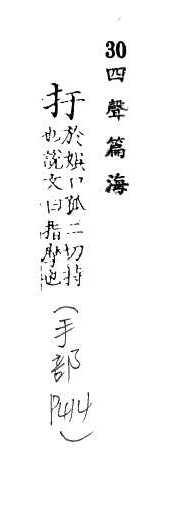 30四聲篇海
扜 於娛口孤二切持
也說文曰指摩也
(手部P414)